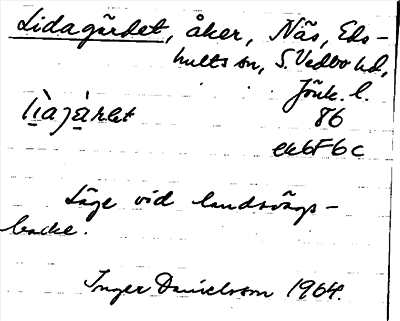 Lidagärdet, åker, Näs, Eds-
hults sn, S. Vedbo hd,
Jönk. l.
86
ek6F6c
Läge vid landsvägs-
backe.
Inger Danielsson 1964.